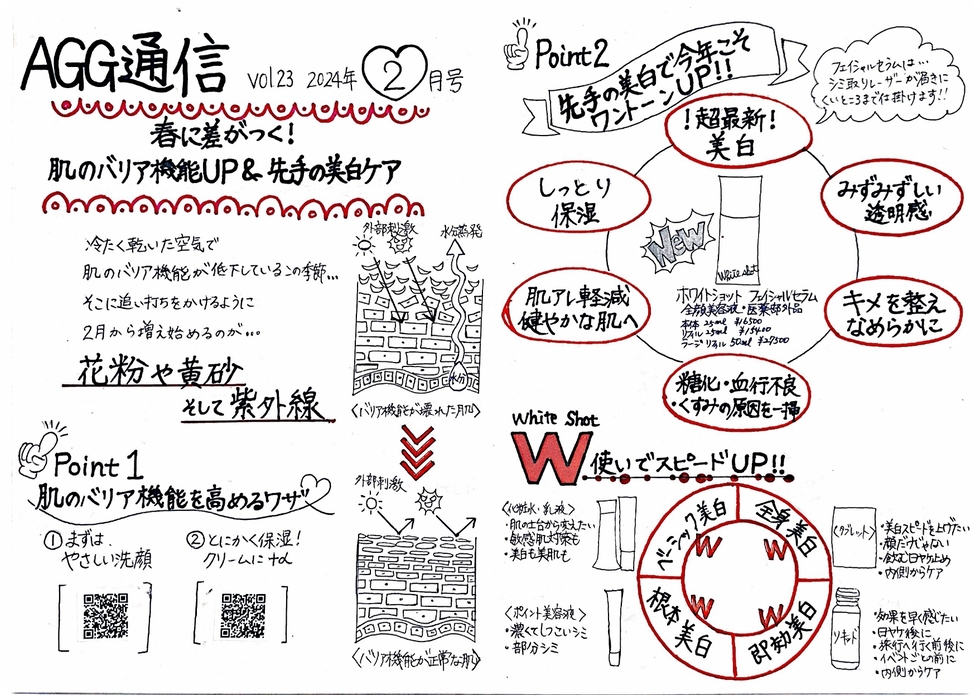 AGG通信 vol23 2024年 2 月号
春に差がつく!
肌のバリア機能UP & 先手の美白ケア
冷たく乾いた空気で
肌のバリア機能が低下しているこの季節…
そこに追い打ちをかけるように
2月から増え始めるのが…
花粉や黄砂
そして 紫外線
外部刺激
水分蒸発
水分
〈バリア機能が壊れた肌〉
Point 1
肌のバリア機能を高めるワザ
① まずは、
やさしい洗顔
② とにかく保湿!
クリームに+α
外部刺激
〈バリア機能が正常な肌〉
Point 2
先手の美白で今年こそ
ワントーンUP!!
フェイシャルセラムは…
シミ取りレーザーが届きに
くいところまでに掛けます!!
!超最新!
美白
しっとり
保湿
みずみずしい
透明感
肌アレ軽減
健やかな肌へ
キメを整え
なめらかに
糖化・血行不良
・くすみの原因を一掃
New
White shot
ホワイトショット フェイシャルセラム
全顔美容液・医薬部外品
本体 25ml ¥16500
リフィル 25ml ¥15400
ラージリフィル 50ml ¥27500
White Shot
W使いでスピードUP!!
〈化粧水・乳液〉
・肌の土台から変えたい
・敏感肌対策も
・美白も美肌も
ベーシック美白
W
全身美白
W
〈タブレット〉
・美白スピードを上げたい
・顔だけじゃない
・飲む日ヤケ止め
・内側からケア
〈ポイント美容液〉
・濃くてしつこいシミ
・部分シミ
根本美白
W
即効美白
W
リキッド
・効果を早く感じたい
・日ヤケ後に
・旅行へ行く前後に
・イベントごとの前に
・内側からケア